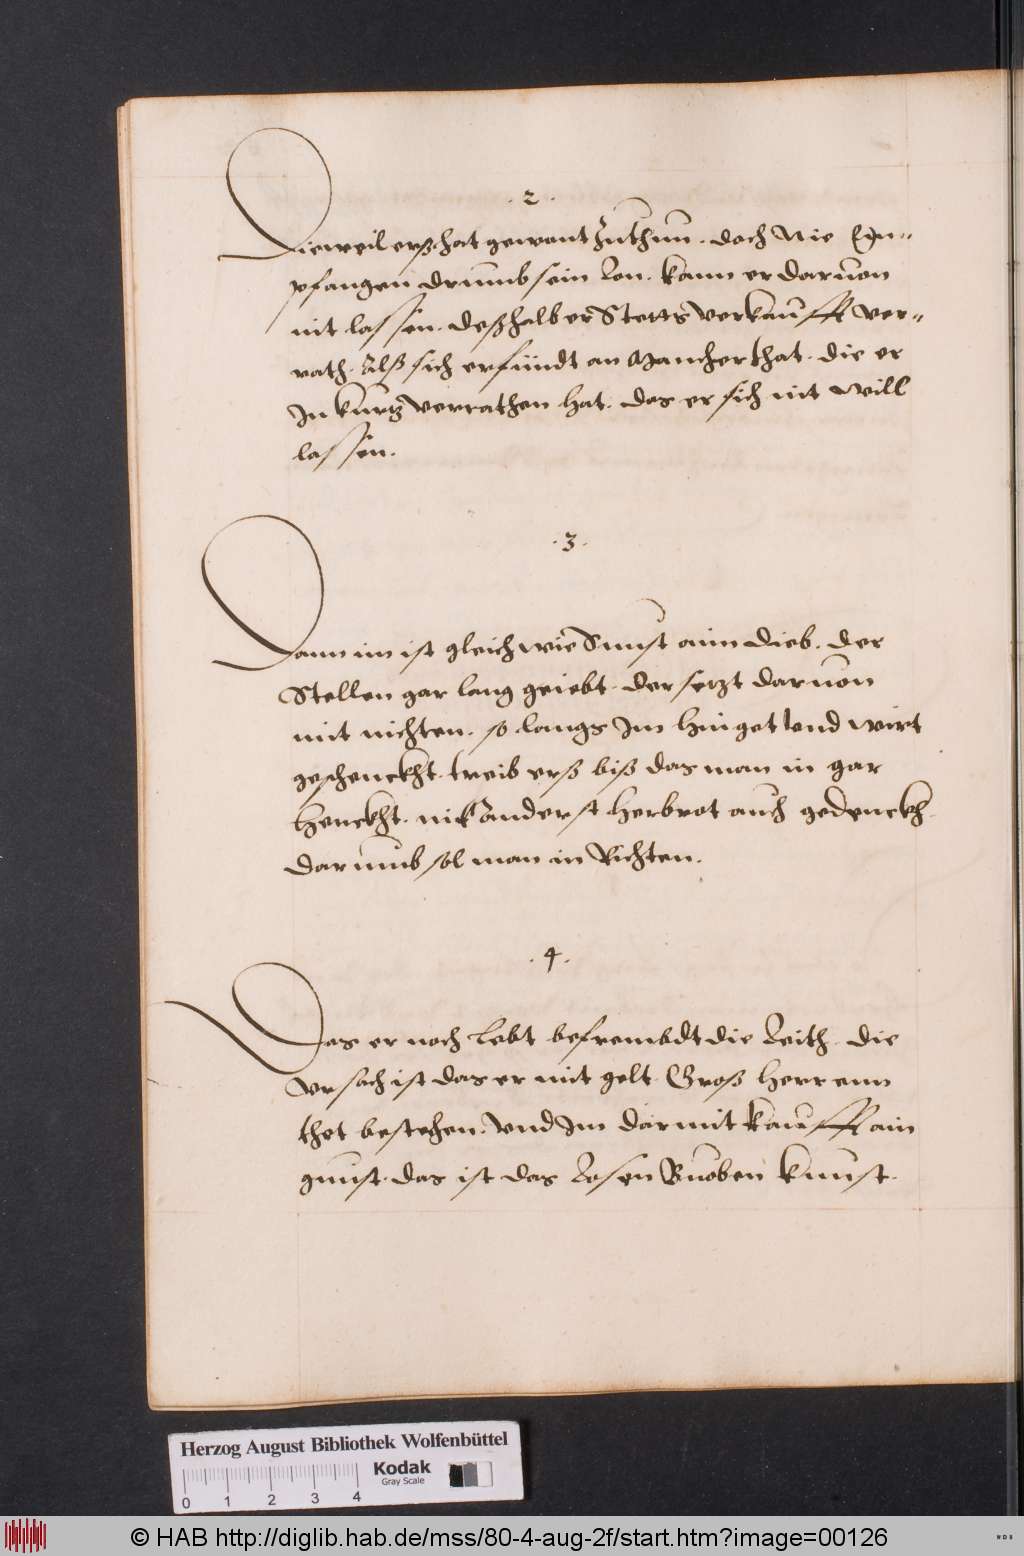 .2.
Dieweil erß hat gewont zuthun. doch Nie Em=
pfangen drumb sein Lon. kann er daruon
nit lassen. deßhalb er Stetts verkaufft ver=
rath. Alß sich erfündt an Mancher that. die er
In kurtz verrathen hat. das er sich nit will
lassen.
.3.
Dann im ist gleich wie Sunst aim dieb. der
Stellen gar lang geiebt. der setzt daruon
mit nichten. so langs Im hinget vnd wirt
geschenckht. treib erß biß das man in gar
henckht. nit anderst herbrot auch gedenckh.
darumb sol man in Richten.
.4.
Das er noch lebt befrembdt die Leith. die
vrsach ist das er mit gelt. Groß herrenn
thet bestehen. vnd Im darmit kaufft ain
gunst. das ist das Losen Buoben kunst.
Herzog August Bibliothek Wolfenbüttel
Kodak
Gray Scale
0 1 2 3 4
© HAB http://diglib.hab.de/mss/80-4-aug-2f/start.htm?image=00126